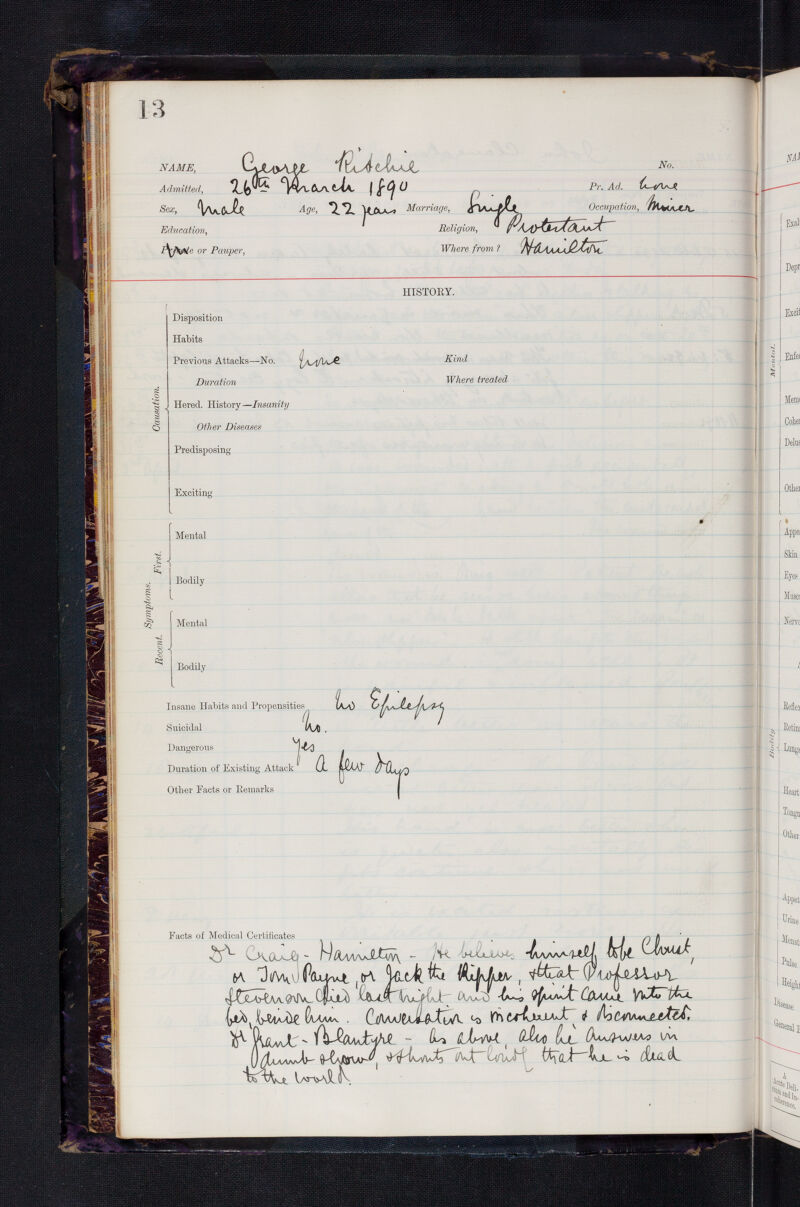 13
NAME, George Ritchie No.
Admitted, 26th March 1890 Pr. Ad. none
Sex, Male Age, 22 years Marriage, Single Occupation, Miner
Education, Religion, Protestant
Private or Pauper, Where from? Hamilton
HISTORY.
Causation.
Disposition
Habits
Previous Attacks—No. none Kind
Duration Where treated
Hered. History—Insanity
Other Diseases
Predisposing
Exciting
Symptoms.
First.
Mental
Bodily
Recent.
Mental
Bodily
Insane Habits and Propensities no Epilepsy
Suicidal no.
Dangerous yes
Duration of Existing Attack A few days
Other Facts or Remarks
Facts of Medical Certificates
Dr Craig - Hamilton - He believes himself to be Christ,
or Tom Payne, or Jack the Ripper, & that Professor
Stevenson died last night and his spirit came into the
bed, beside him. Conversation is incoherent & disconnected.
Dr Grant - Blantyre - as above, also he answers in
dumb show, & shouts out loudly that he is dead
to the world.
Mental.
Bodily
Skin
Eyes
Heart
Pulse
Disease.